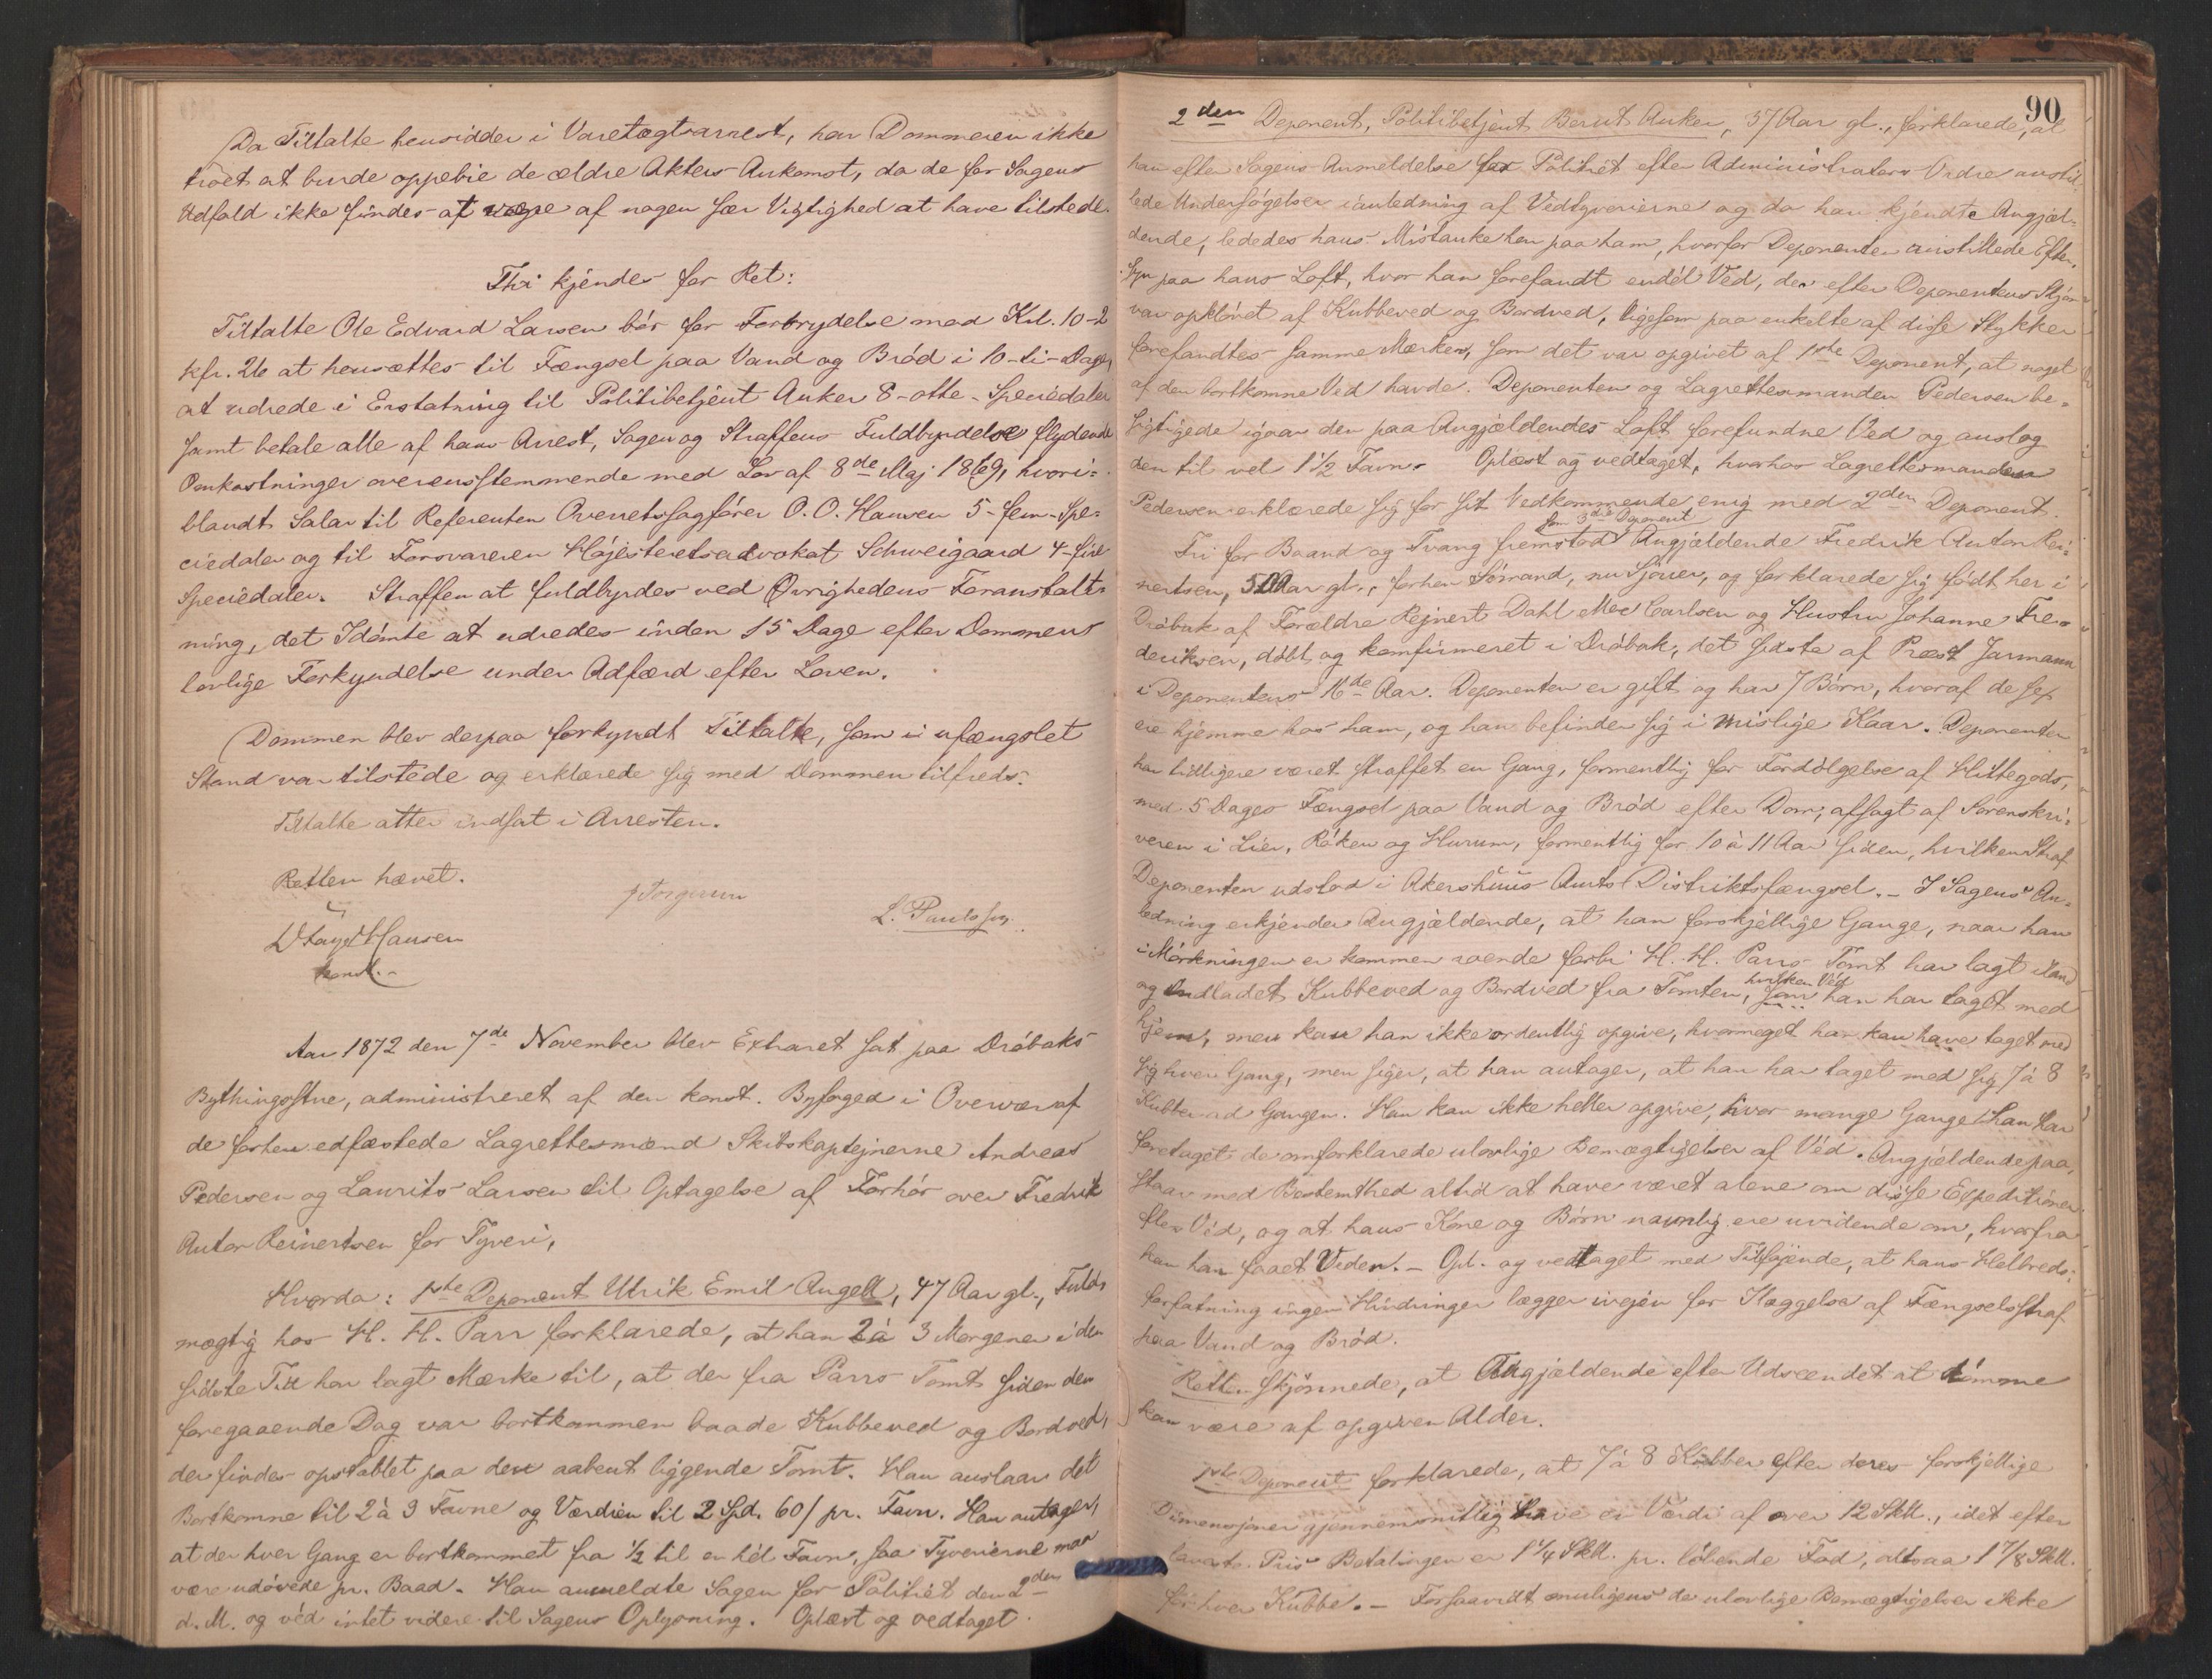 Da Tiltalte hensidder i Varetægtsarrest, har Dommeren ikke
troet at burde oppebie de ældre Akters Ankomst, da de for Sagens
Udfald ikke findes at være af nogen sær Vigtighed at have tilstede.
Thi kjendes for Ret:
Tiltalte Ole Edvard Larsen bør for Forbrydelse mod Krl. 10-2
kfr. 26 at hensættes til Fængsel paa Vand og Brød i 10-ti-Dage,
at udrede i Erstatning til Politibetjent Anker 8-otte-Speciedaler
samt betale alle af hans Arrest, Sagen og Straffens Fuldbyrdelse flydende
Omkostninger overensstemmende med Lov af 8de Maj 1869, hvori=
blandt Salar til Referenten Overretssagfører O. O. Hansen 5-fem-Spe=
ciedaler og til Forsvareren Højesteretsadvokat Schweigaard 4-fire
Speciedaler. Straffen at fuldbyrdes ved Øvrighedens Foranstalt=
ning, det Idømte at udredes inden 15 Dage efter Dommens
lovlige Forkyndelse under Adfærd efter Loven.
Dommen blev derpaa forkyndt Tiltalte, som i ufængslet
Stand var tilstede og erklærede sig med Dommen tilfreds.
Tiltalte atter indsat i Arresten.
Retten hævet.
Hansen
konst.
L. Paulssen
Aar 1872 den 7de November blev Extraret sat paa Drøbaks
Bythingsstue, administreret af den konst. Byfoged i Overvær af
de forhen edfæstede Lagrettesmænd Skibskaptejnerne Andreas
Pedersen og Laurits Larsen til Optagelse af Forhør over Fredrik
Anton Reinertsen for Tyveri,
Hvorda: 1ste Deponent Ulrik Emil Angell, 47 Aar gl., Fuld=
mægtig hos H. H. Parr forklarede, at han 2 à 3 Morgener i den
sidste Tid har lagt Mærke til, at der fra Parrs Tomt siden den
foregaaende Dag var bortkommen baade Kubbeved og Bordved,
der findes opstablet paa den aabent liggende Tomt. Han anslaar det
Bortkomne til 2 à 3 Favne og Værdien til 2 Spd. 60 ß pr. Favn. Han antager,
at der hver Gang er bortkommet fra 1/2 til en hel Favn, saa Tyverierne maa
være udøvede pr. Baad. Han anmeldte Sagen for Politiet den 2den
d. M. og véd intet videre til Sagens Oplysning. Oplæst og vedtaget.
90
2den Deponent, Politibetjent Bernt Anker, 37 Aar gl., forklarede, at
han efter Sagens Anmeldelse for Politiet efter Administrators Ordre anstil=
lede Undersøgelser i anledning af Vedtyverierne og da han kjendte Angjæl=
dende, lededes hans Mistanke hen paa ham, hvorfor Deponenten anstillede Efter=
syn paa hans Loft, hvor han forefandt endél Ved, der efter Deponentens Skjøn
var opkløvet af Kubbeved og Bordved, ligesom paa enkelte af disse Stykker
forefandtes samme Mærker, som det var opgivet af 1ste Deponent, at noget
af den bortkomne Ved havde. Deponenten og Lagrettesmanden Pedersen be=
sigtigede igaar den paa Angjældendes Loft forefundne Ved og anslog
den til vel 1 1/2 Favn. Oplæst og vedtaget, hvorhos Lagrettesmanden
Pedersen erklærede sig for sit Vedkommende enig med 2den Deponent.
som 3die Deponent
Fri for Baand og Tvang fremstod Angjældende Fredrik Anton Rei=
nertsen, 50 Aar gl., forhen Sømand, nu Sjouer, og forklarede sig født her i
Drøbak af Forældre Rejnert Dahl Moe Carlsen og Hustru Johanne Fre=
deriksen, døbt og konfirmeret i Drøbak, det sidste af Præst Jarmann
i Deponentens 16de Aar. Deponenten er gift og har 7 Børn, hvoraf de sex
ere hjemme hos ham, og han befinder sig i mislige Kaar. Deponenten
har tidligere været straffet en Gang, formentlig for Fordølgelse af Hittegods,
med 5 Dages Fængsel paa Vand og Brød efter Dom, afsagt af Sorenskri=
veren i Lier, Røken og Hurum, formentlig for 10 à 11 Aar siden, hvilken Straf
Deponenten udstod i Akershuus Amts Distriktsfængsel. - I Sagens An=
ledning erkjender Angjældende, at han forskjellige Gange, naar han
i Mørkningen er kommen roende forbi H. H. Parrs Tomt har lagt iland
hvilken Véd
og indladet Kubbeved og Bordved fra Tomten, som han har taget med
hjem, men kan han ikke ordentlig opgive, hvormeget han kan have taget med
sig hver Gang, men siger, at han antager, at han har taget med sig 7 à 8
Kubber ad Gangen. Han kan ikke heller opgive, hvor mange Gange han har
foretaget de omforklarede ulovlige Bemægtigelser af Véd. Angjældende paa=
staar med Bestemthed altid at have været alene om disse Expeditioner
efter Véd, og at hans Kone og Børn navnlig ere uvidende om, hvorfra
han har faaet Veden. - Opl. og vedtaget med Tilføjende, at hans Helbreds=
forfatning ingen Hindringer lægger ivejen for Ilæggelse af Fængselsstraf
paa Vand og Brød.
Retten skjønnede, at Angjældende efter Udseendet at dømme
kan være af opgiven Alder.
1ste Deponent forklarede, at 7 à 8 Kubber efter deres forskjellige
Dimensjoner gjennemsnitlig have en Værdi af over 12 Skll., idet efter
laveste Pris Betalingen er 1 1/4 Skll. pr. løbende Fod, altsaa 1 7/8 Skll.
for hver Kubbe. - Forsaavidt muligens de ulovlige Bemægtigelser ikke